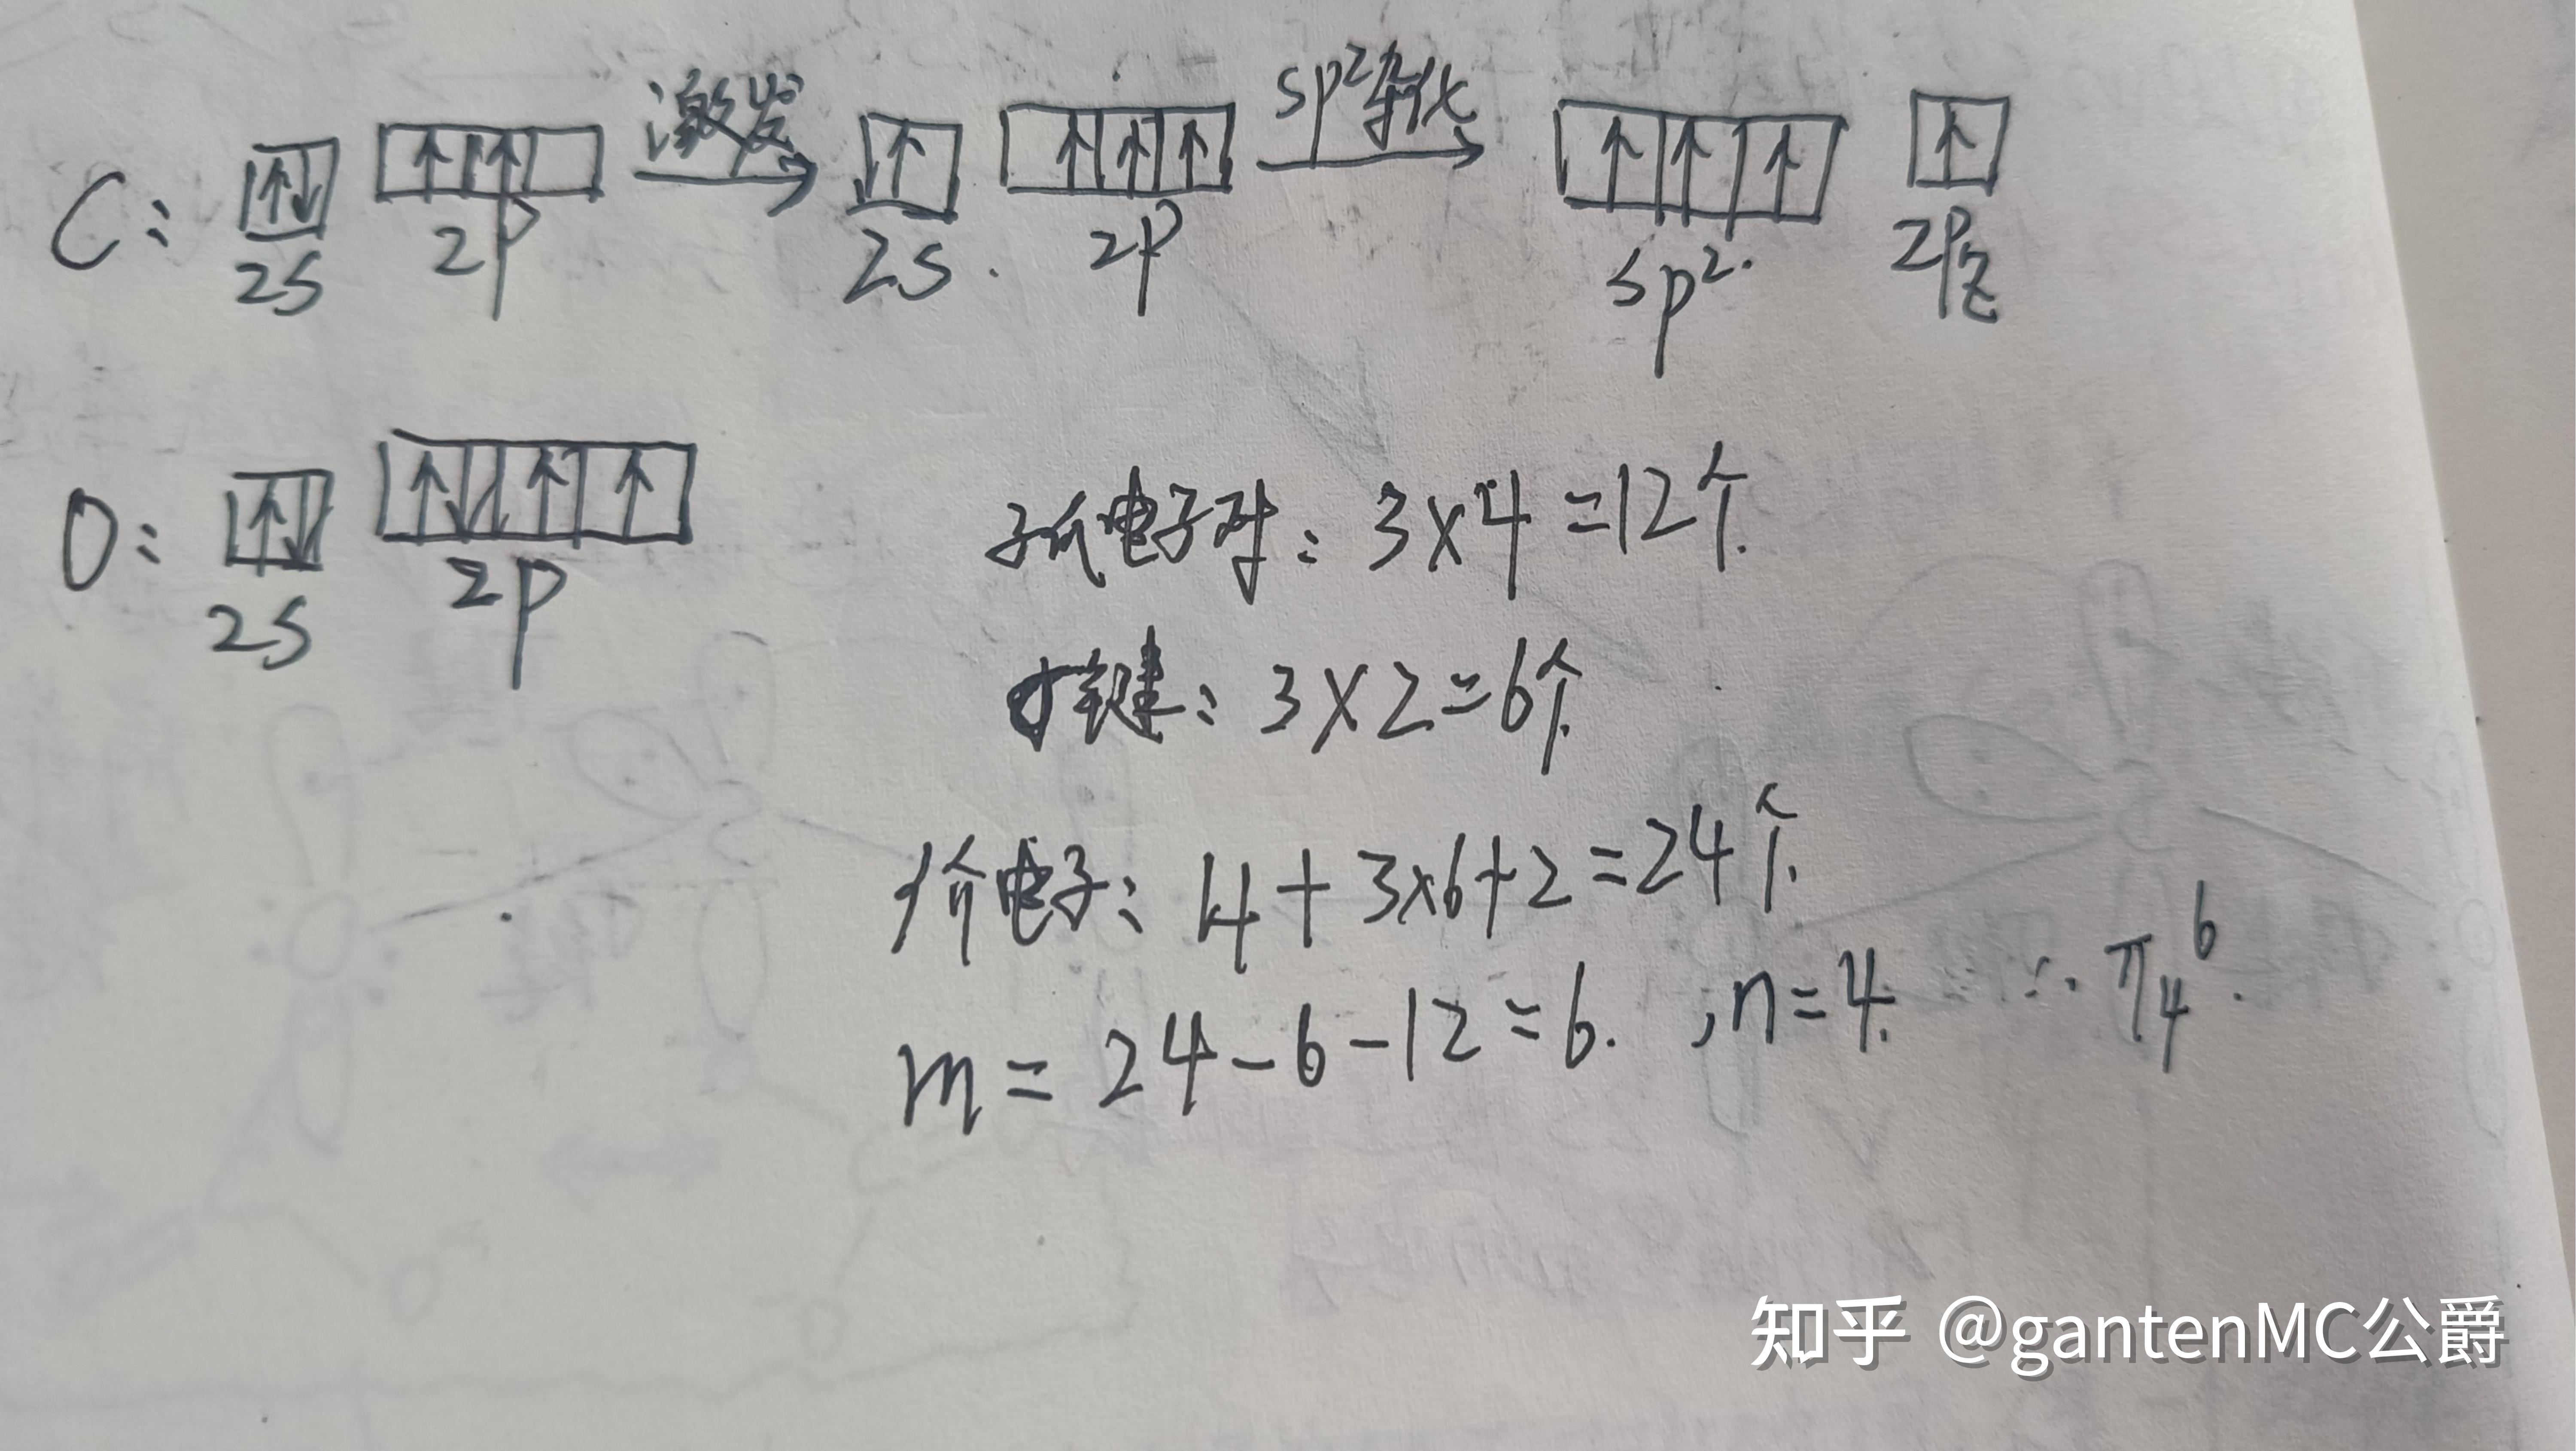 C: ↑↓ ↑ ↑ 激发 ↑ ↑ ↑ ↑ sp²杂化 ↑ ↑ ↑ ↑
2s 2p 2s. 2p sp². 2pz
O: ↑↓ ↑↓ ↑ ↑
2s 2p
孤电子对: 3×4=12个.
σ键: 3×2=6个.
价电子: 4+3×6+2=24个.
m=24-6-12=6. ,n=4. ∴ π₄⁶.
知乎 @gantenMC公爵